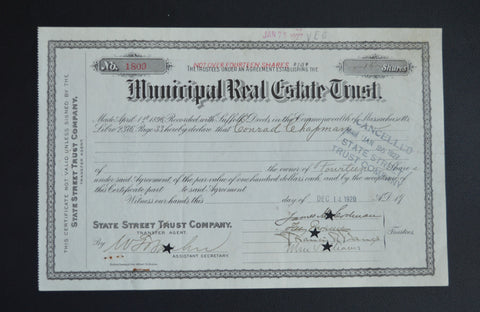 JAN 25
No. 1809
NOT OVER FOURTEEN SHARES
Shares
THE TRUSTEES UNDER AN AGREEMENT ESTABLISHING THE
Municipal Real Estate Trust
Made April 1st 1896, Recorded with Suffolk Deeds in the Commonwealth of Massachusetts
Libro 2346, Page 33 hereby declare that Conrad Chapman
CANCELLED
JAN 1927
STATE STREET
TRUST CO.
the owner of Fourteen Shares
under said Agreement of the par value of one hundred dollars each and by the acceptance of
this Certificate part to said Agreement
Witness our hands this day of DEC 14 1920 A.D. 19
STATE STREET TRUST COMPANY.
TRANSFER AGENT
Trustees
By
ASSISTANT SECRETARY
THIS CERTIFICATE NOT VALID UNLESS SIGNED BY THE
STATE STREET TRUST COMPANY,
TRANSFER AGENT